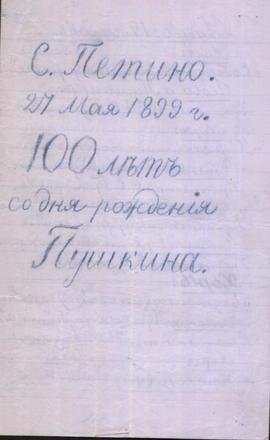 С. Петино.
27 Мая 1899 г.
100 лѣтъ
со дня рожденія
Пушкина.